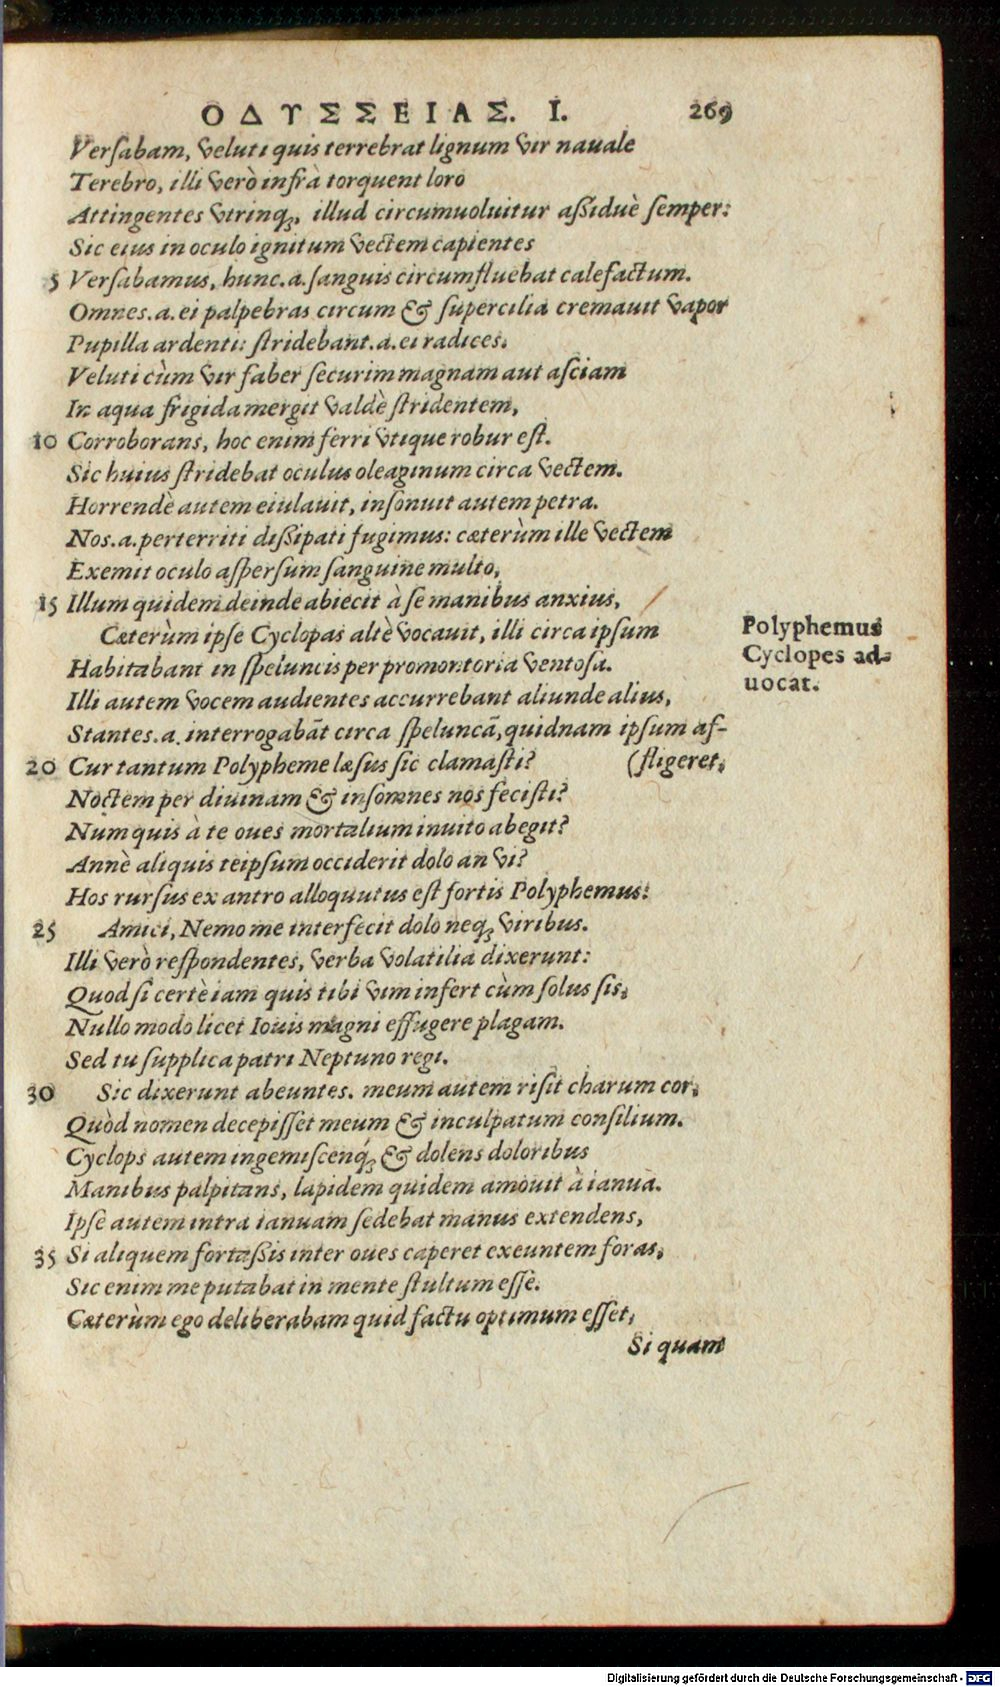 ΟΔΥΣΣΕΙΑΣ. Ι. 269
Verſabam, veluti quis terrebrat lignum vir nauale
Terebro, illi verò infrà torquent loro
Attingentes vtrinq;, illud circumuoluitur aßiduè ſemper:
Sic eius in oculo ignitum vectem capientes
5 Verſabamus, hunc.a.ſanguis circumfluebat calefactum.
Omnes.a.ei palpebras circum & ſupercilia cremauit vapor
Pupilla ardenti: ſtridebant.a.ei radices.
Veluti cùm vir faber ſecurim magnam aut aſciam
In aqua frigida mergit valdè ſtridentem,
10 Corroborans, hoc enim ferri vtique robur eſt.
Sic huius ſtridebat oculus oleaginum circa vectem.
Horrendè autem eiulauit, inſonuit autem petra.
Nos.a.perterriti dißipati fugimus: cæterùm ille vectem
Exemit oculo aſperſum ſanguine multo,
15 Illum quidem deinde abiecit à ſe manibus anxius,
Cæterùm ipſe Cyclopas altè vocauit, illi circa ipſum
Habitabant in ſpeluncis per promontoria ventoſa.
Illi autem vocem audientes accurrebant aliunde alius,
Stantes.a.interrogabãt circa ſpeluncã, quidnam ipſum af-
20 Cur tantum Polypheme læſus ſic clamaſti? (fligeret,
Noctem per diuinam & inſomnes nos feciſti?
Num quis à te oues mortalium inuito abegit?
Annè aliquis teipſum occiderit dolo an vi?
Hos rurſus ex antro alloquutus eſt fortis Polyphemus:
25 Amici, Nemo me interfecit dolo neq; viribus.
Illi verò reſpondentes, verba volatilia dixerunt:
Quod ſi certè iam quis tibi vim infert cùm ſolus ſis,
Nullo modo licet Iouis magni effugere plagam.
Sed tu ſupplica patri Neptuno regi.
30 Sic dixerunt abeuntes. meum autem riſit charum cor,
Quòd nomen decepiſſet meum & inculpatum conſilium.
Cyclops autem ingemiſcenq́; & dolens doloribus
Manibus palpitans, lapidem quidem amouit à ianua.
Ipſe autem intra ianuam ſedebat manus extendens,
35 Si aliquem fortaßis inter oues caperet exeuntem foras,
Sic enim me putabat in mente ſtultum eſſe.
Cæterùm ego deliberabam quid factu optimum eſſet,
Si quam
Polyphemus
Cyclopes ad-
uocat.
Digitalisierung gefördert durch die Deutsche Forschungsgemeinschaft - DFG